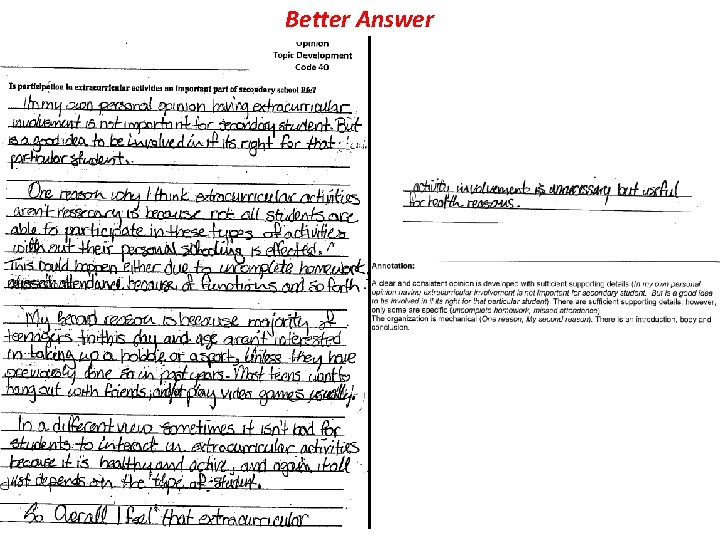 Better Answer
Opinion
Topic Development
Code 40
Is participation in extracurricular activities an important part of secondary school life?
In my own personal opinion having extracurricular
involvement is not important for secondary student. But
is a good idea to be involved in if its right for that
particular student.
One reason why I think extracurricular activities
arent nessecary is because not all students are
able to participate in these types of activities
with out their personal schooling is effected.
This could happen either due to uncomplete homework,
attendance because of functions and so forth.
My second reason is because majority of
teenagers in this day and age arent interested
in taking up a hobbie or a sport, Unless they have
previously done so in past years. Most teens want to
hang out with friends, and/or play video games usually.
In a different view sometimes it isn't bad for
students to interact in extracurricular activities
because it is healthy and active, and again it all
just depends on the type of student.
So Overall I feel that extracurricular
activity involvement is unnecessary but useful
for health reasons.
Annotation:
A clear and consistent opinion is developed with sufficient supporting details (In my own personal
opinion having extracurricular involvement is not important for secondary student. But is a good idea
to be involved in if its right for that particular student). There are sufficient supporting details, however,
only some are specific (uncomplete homework, missed attendance).
The organization is mechanical (One reason, My second reason). There is an introduction, body and
conclusion.